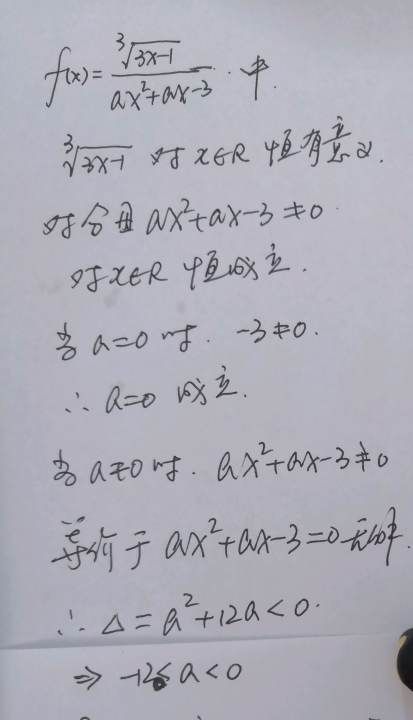 f(x)=∛(3x-1)/(ax²+ax-3) 中.
∛(3x-1) 对 x∈R 恒有意义.
对分母 ax²+ax-3≠0
对x∈R 恒成立.
当 a=0 时. -3≠0.
∴ a=0 成立.
当 a≠0 时. ax²+ax-3≠0
等价于 ax²+ax-3=0 无解.
∴ Δ=a²+12a<0.
⇒ -12<a<0